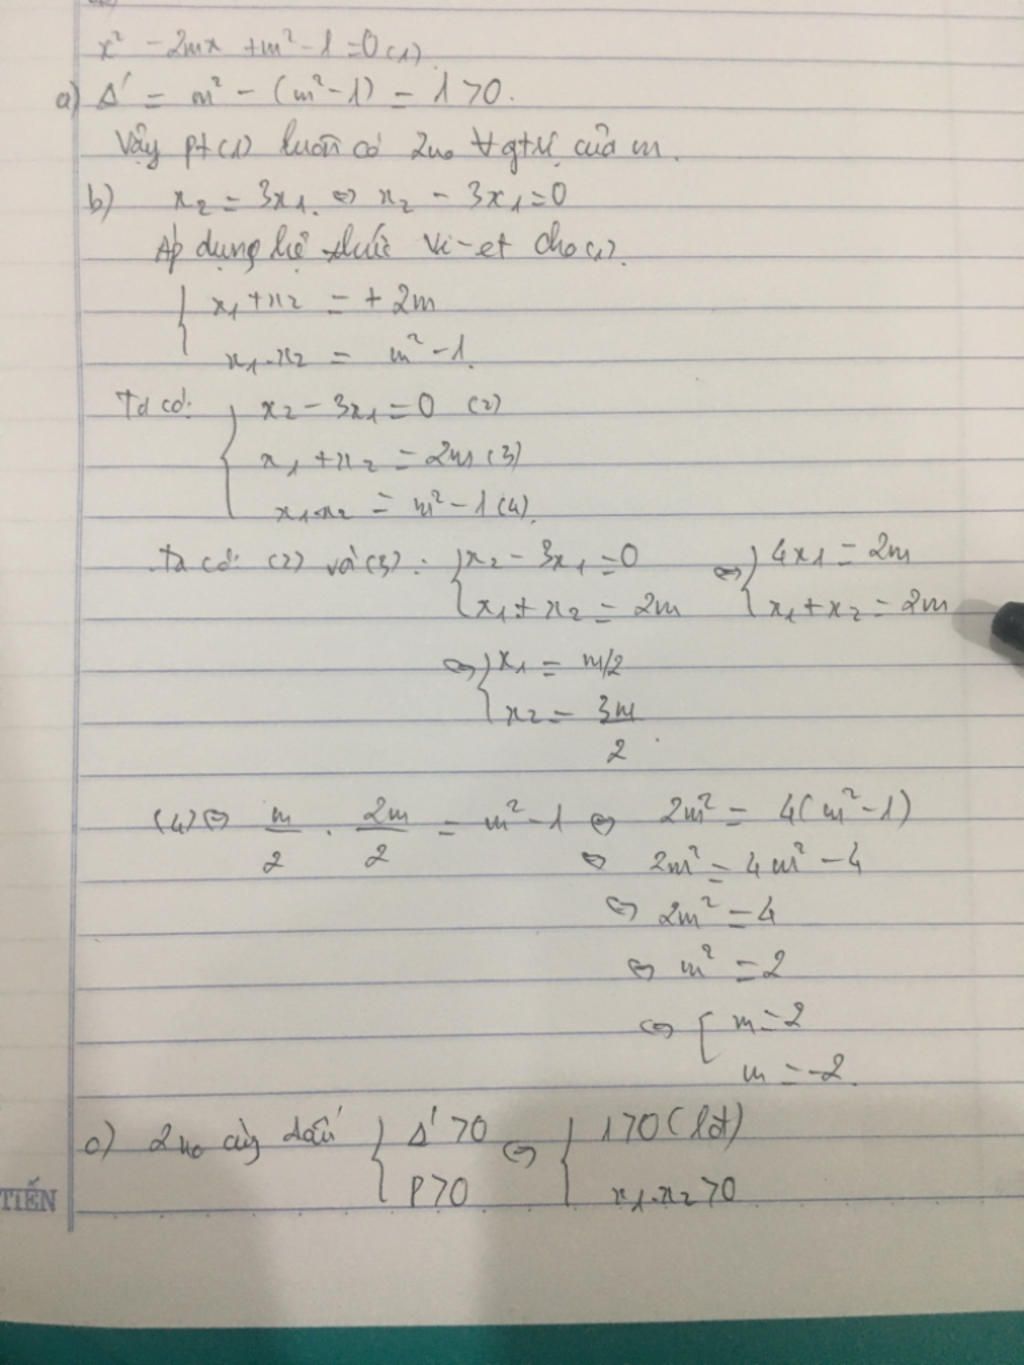 x² - 2mx + m² - 1 = 0 (1)
a) Δ' = m² - (m² - 1) = 1 > 0.
Vậy pt (1) luôn có 2no ∀ gtrị của m.
b) x₂ = 3x₁. ⇔ x₂ - 3x₁ = 0
Áp dụng hệ thức Vi-et cho (1).
{ x₁ + x₂ = + 2m
x₁.x₂ = m² - 1.
Ta có: { x₂ - 3x₁ = 0 (2)
x₁ + x₂ = 2m (3)
x₁.x₂ = m² - 1 (4).
Ta có: (2) và (3): { x₂ - 3x₁ = 0 ⇔ { 4x₁ = 2m
x₁ + x₂ = 2m x₁ + x₂ = 2m
⇔ { x₁ = m/2
x₂ = 3m/2.
(4) ⇔ m/2 . 2m/2 = m² - 1 ⇔ 2m² = 4(m² - 1)
⇔ 2m² = 4m² - 4
⇔ 2m² = 4
⇔ m² = 2
⇔ [ m = 2
m = -2.
c) 2no cùng dấu { Δ' > 0 ⇔ { 1 > 0 (lđ)
P > 0 x₁.x₂ > 0
TIẾN